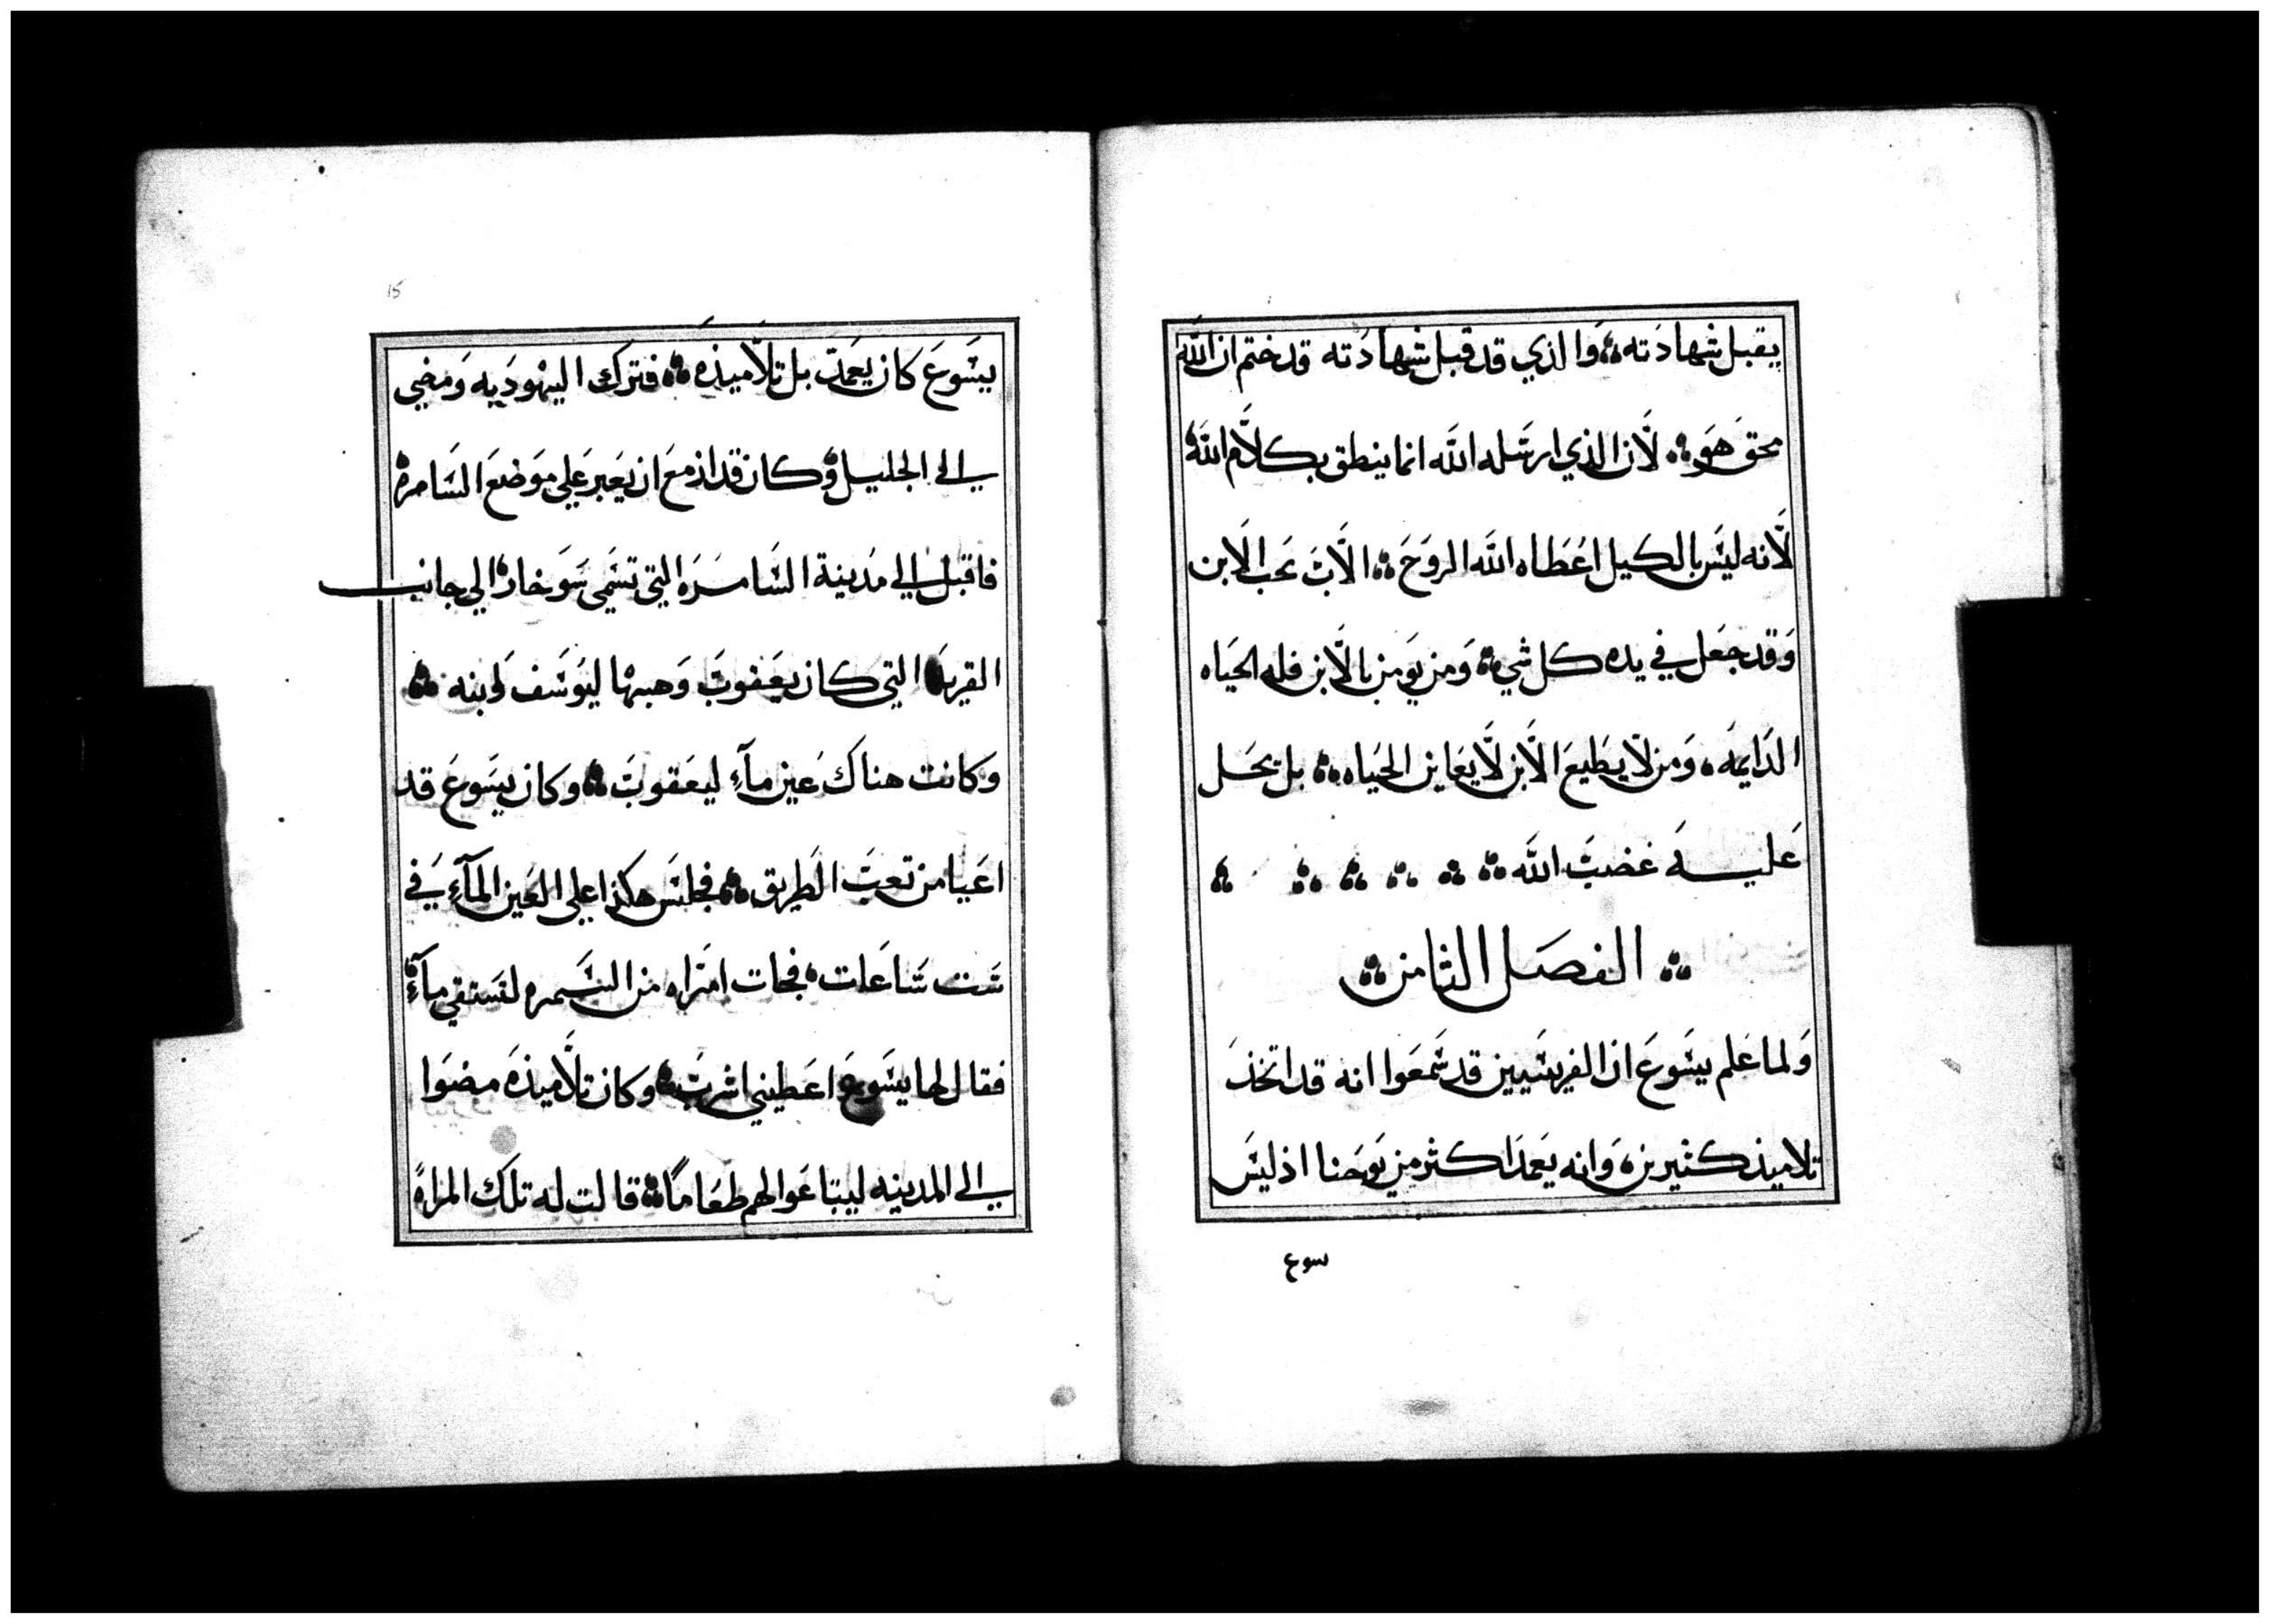 يقبل شهادته والذي قد قبل شهادته قد ختم ان الله
محق هو لان الذي ارسله الله انما ينطق بكلام الله
لانه ليس بالكيل اعطاه الله الروح الاب يحب الابن
وقد جعل في يده كل شي ومن يومن بالابن فله الحياه
الدايمه ومن لا يطيع الابن لا يعاين الحياه بل يحل
عليه غضب الله
الفصل الثامن
ولما علم يسوع ان الفريسيين قد سمعوا انه قد اتخذ
تلاميذ كثيرين وانه يعمد اكثر من يوحنا اذ ليس
سوع
15
يسوع كان يعمد بل تلاميذه فترك اليهوديه ومضي
الي الجليل وكان قد ازمع ان يعبر علي موضع السامره
فاقبل الي مدينة السامره التي تسمي سوخار الي جانب
القريه التي كان يعقوب وهبها ليوسف ابنه
وكانت هناك عين مآء ليعقوب وكان يسوع قد
اعيا من تعب الطريق فجلس هكذا علي العين المآء في
ست ساعات فجات امراه من السمره لتستقي مآء
فقال لها يسوع اعطيني اشرب وكان تلاميذه مضوا
الي المدينه ليبتاعوا لهم طعاما قالت له تلك المراة